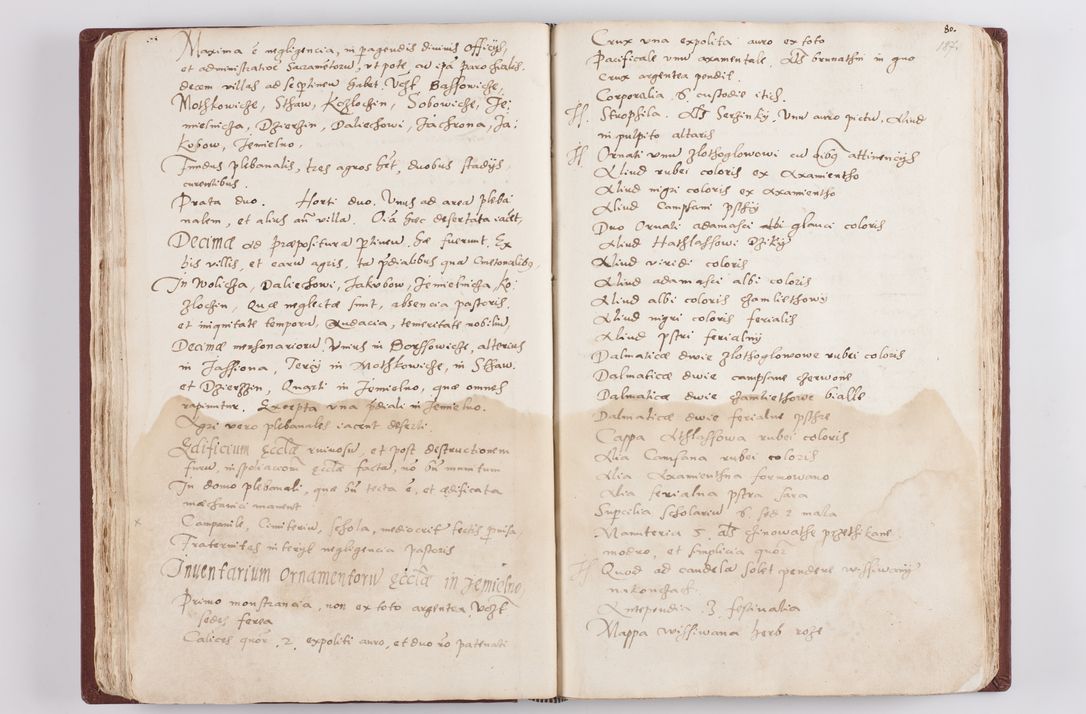 Maxima e negligencia, in pagendis divinis Officijs,
et administratioe Sacramētoru, ut pote cu ipa parochialis
decem villas ad se ptinen habet. Vcȝt Bassowiche,
Mothkowiche, Sthaw, Kozlochin, Sobowiche, Je
mielnicha, Dzierzin, Daliechowi, Jachrona, Ja
kobow, Jemielno.
Fundus plebanalis, tres agros hēt, duobus stadijs
currentibus.
Prata duo. Horti duo. Vnus ad area pleba
nalem, et alius añ villa. Oiā hæc desertata iacēt,
Decimæ ad præpositura ptinen. hæ fuerunt. Ex
his villis, et earu agris, ta pdialibus qua Cmetonalibȝ,
In Wolicha, Daliechowi, Jakobow, Jemielnicha, Ko
zlochin, Quæ neglectæ sunt, absencia pastoris,
et iniquitate temporu, Audacia, temeritate nobiliu,
Decimæ mensonarioru, Vnius in Borssowiche, alterius
in Jassiona, Tercij in Mothkowiche, in Sthaw.
et Dzierzzin, Quarti in Jemielno, quæ omnes
rapiuntur. Excepta vna pdiali in Jemielno.
Agri vero plebanales iacent deserti.
Edificium Eccłæ ruinosu, et post destructionem
suru, in spoliacom eccłæ facta, no bn munitum
In domo plebanali, quæ bn tecta e, et ædificata
mæchanici manent
Campanile, Cimiteriu, schola, mediocrit tectis
Fraternitas interijt negligencia pastoris
Inventarium Ornamentoru Eccłæ in Jemielno
Primo monstrancia, non ex toto argentea, Vcȝt
sedes ferea
Calices quor 2. expoliti auro, et duo ro patenati
80.
187.
Crux vna expolita auro ex toto
Pacificale vnu axamentale. Als brunathni in quo
Crux argentea pendit.
Corporalia 6. custodie itid.
Strophila. Als Serzinky, Vnu auro pictu, Aliud
in pulpito altaris
Ornati vnu Zlothoglowowi cu oibȝ attinencijs
Aliud rubei coloris ex Axamientho
Aliud nigri coloris ex Axamientho
Aliud Campsani psthy
Duo Ornati adamasci albi glauci coloris
Aliud Hathlassowi Dziky
Aliud viridi coloris
Aliud adamasci albi coloris
Aliud albi coloris chamliethowy
Aliud nigri coloris ferialis
Aliud pstri ferialny
Dalmaticæ dwie Zlothoglowowe rubri coloris
Dalmaticæ dwie campsane cherwone
Dalmaticæ dwie chamliethowe bialle
Dalmaticæ dwie ferialne psthre
Cappa Athlassowa rubei coloris
Alia Camsana rubei coloris
Alia Axamienthna formowano
Alia ferialna pstra sara
Supcilia scholariu 6. sed 2 mala
Manuteria 5. als chinowathe przethkane
modro, et simplicia quor
Quod ad candela solet pendere wissiwany
na konchach.
Antependia 3 festivalia
Mappa wissiwana herb roze